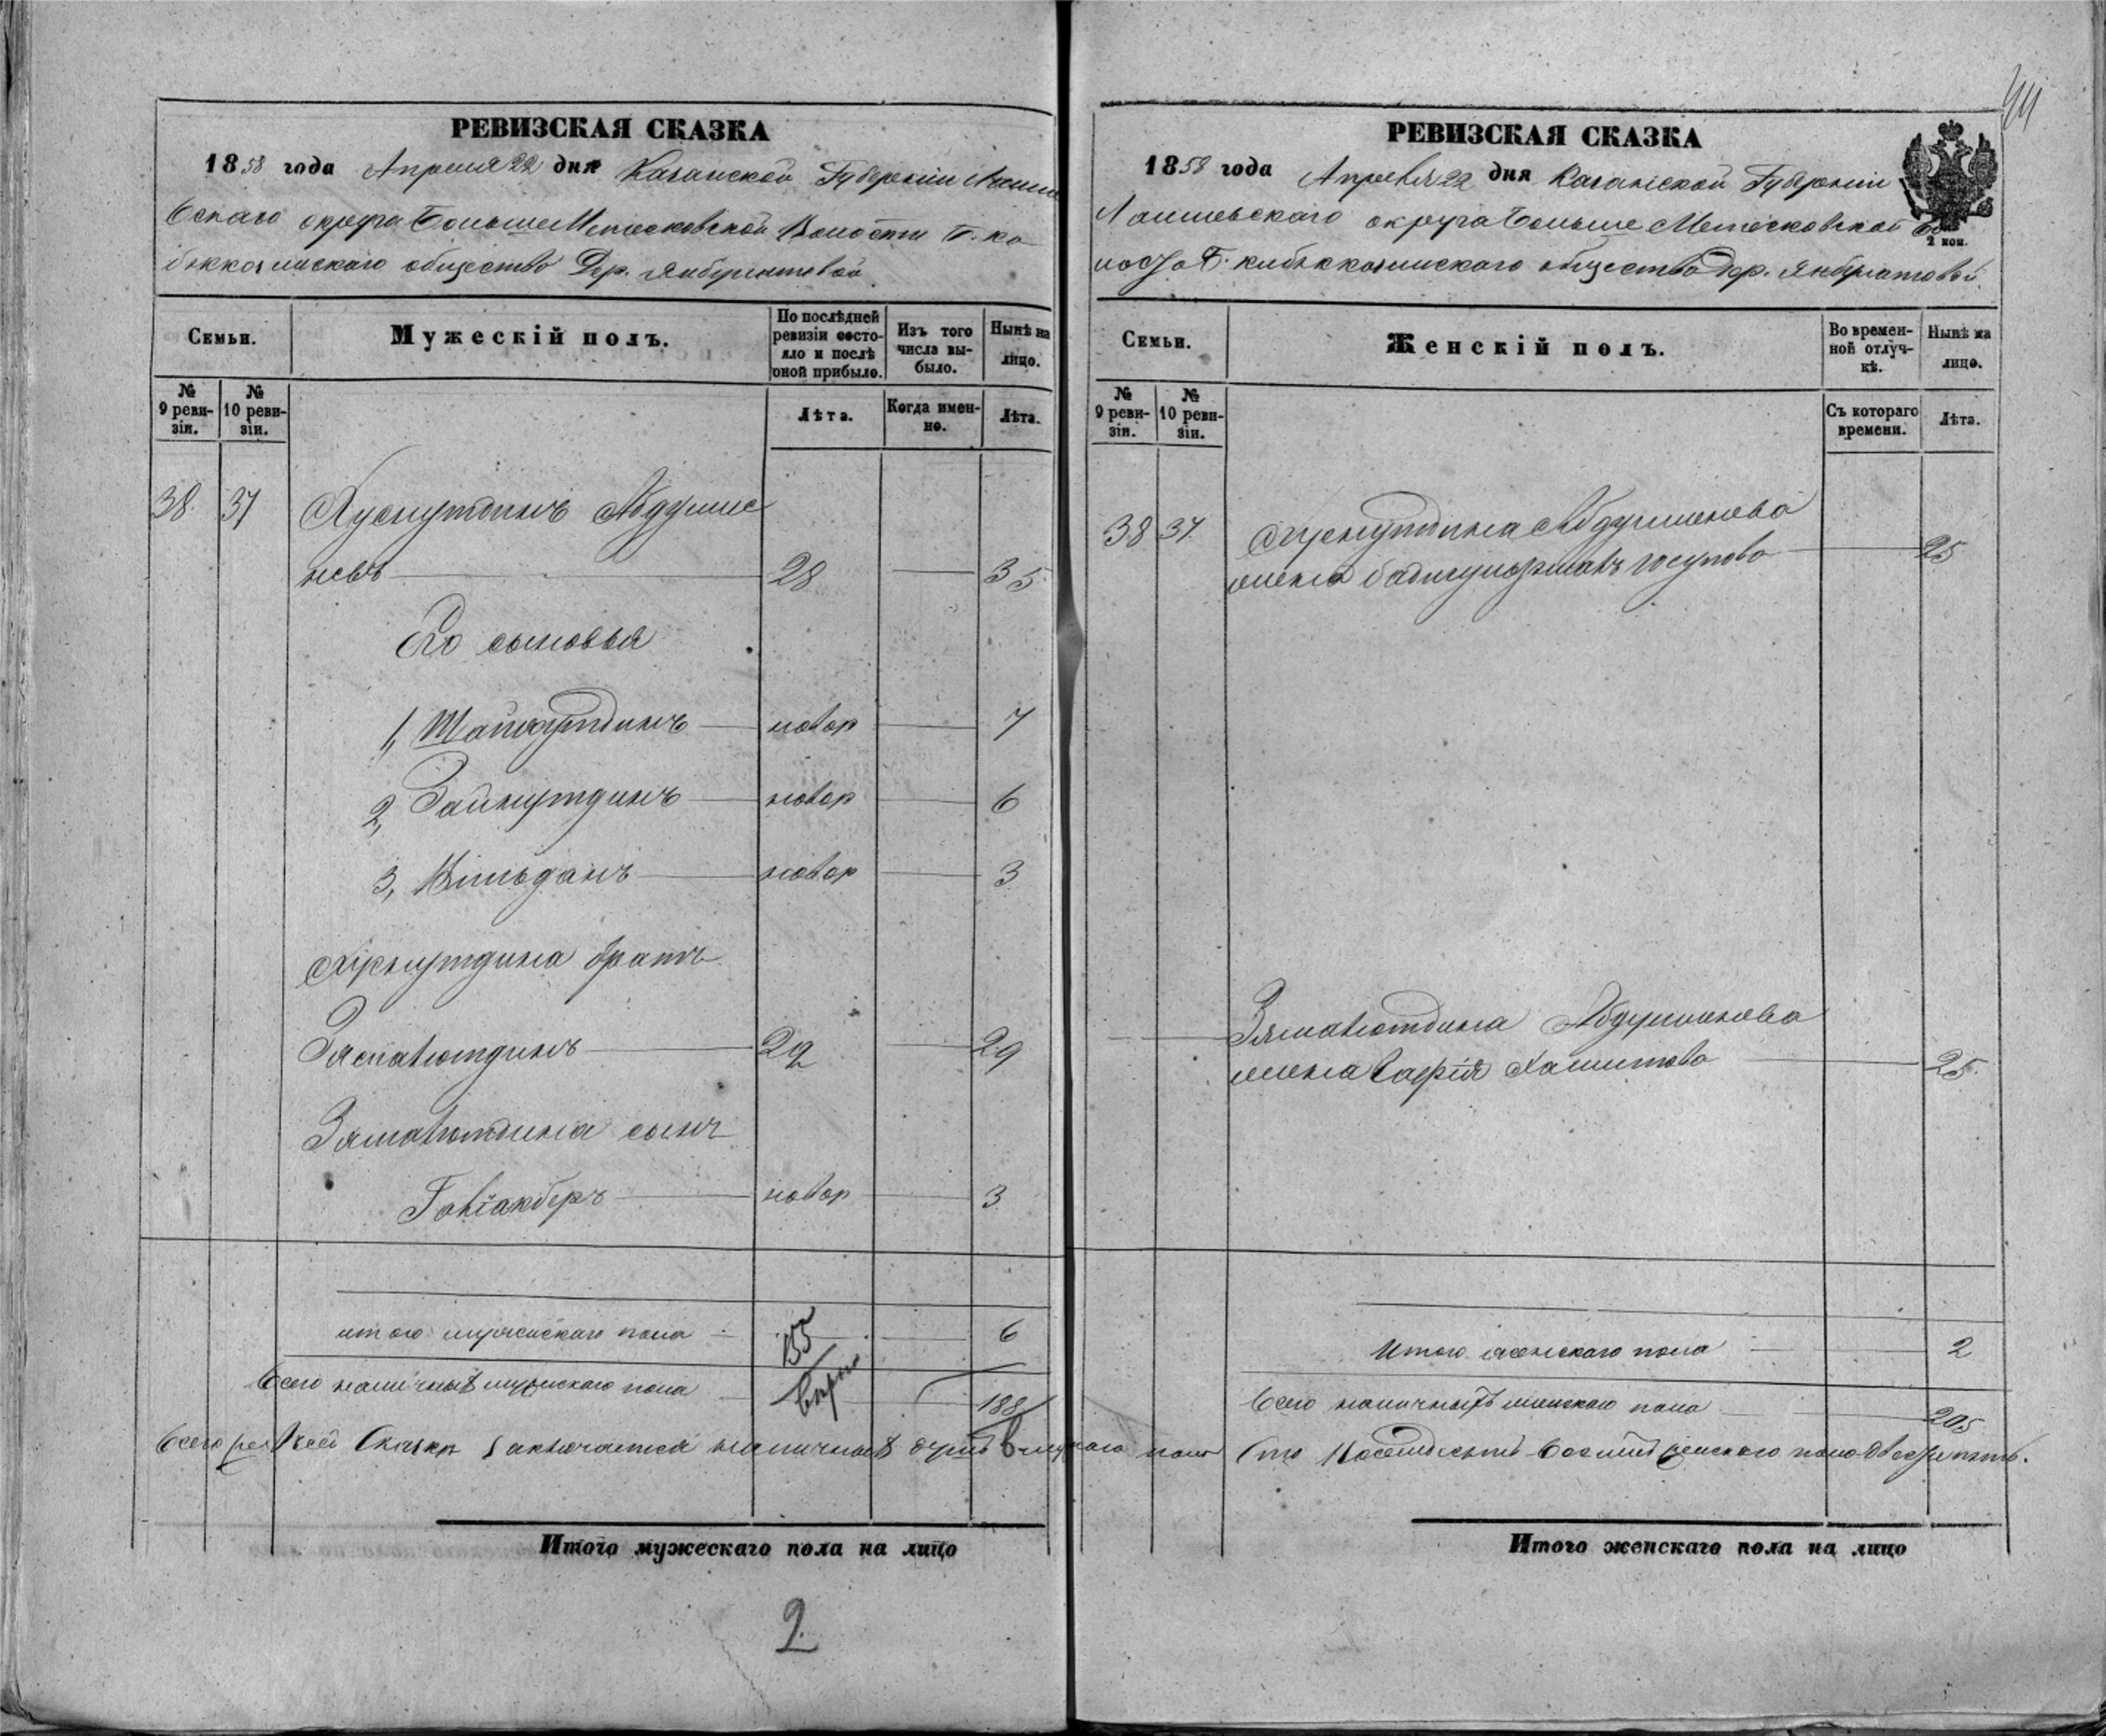 РЕВИЗСКАЯ СКАЗКА
1858 года Апреля 22 дня Казанской Губернии Лаише
вскаго округа Больше Метесковской Волости
общество Дер.
Семьи.
Мужескій полъ.
По послѣдней ревизіи состояло и послѣ оной прибыло.
Изъ того числа выбыло.
Нынѣ на лицо.
№ 9 ревизіи.
№ 10 ревизіи.
Лѣта.
Когда именно.
Лѣта.
38. 37 Хуснутдинъ Абдулме
невъ 28 35
Его сыновья
1, Шайхутдинъ новор 7
2, Зайнутдинъ новор 6
3, Вильданъ новор 3
Хуснутдина братъ
29 29
сынъ
новор 3
итого мужескаго пола 6
Всего наличныхъ мужескаго пола 188
Итого мужескаго пола на лицо
2
44
РЕВИЗСКАЯ СКАЗКА
1858 года Апреля 22 дня Казанской Губернии
Лаишевскаго округа Больше Метесковской Во
лости общество дер.
2 коп.
Семьи.
Женскій полъ.
Во временной отлучкѣ.
Нынѣ на лицо.
№ 9 ревизіи.
№ 10 ревизіи.
Съ котораго времени.
Лѣта.
38 37. Хуснутдина Абдулменева
жена Юсупова 25
Абдулменева
жена Сафія Хамитова 25.
Итого женскаго пола 2
Всего наличныхъ женскаго пола 205
Всего сей Сказки заключается наличныхъ душъ пола Сто Восемдесятъ Восемь женскаго пола двести пять.
Итого женскаго пола на лицо